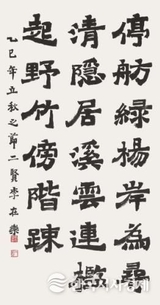 停舫綠楊岸為尋
清隱居溪雲連檻
起野竹傍階踈
乙巳年立秋之節二賢李在樂